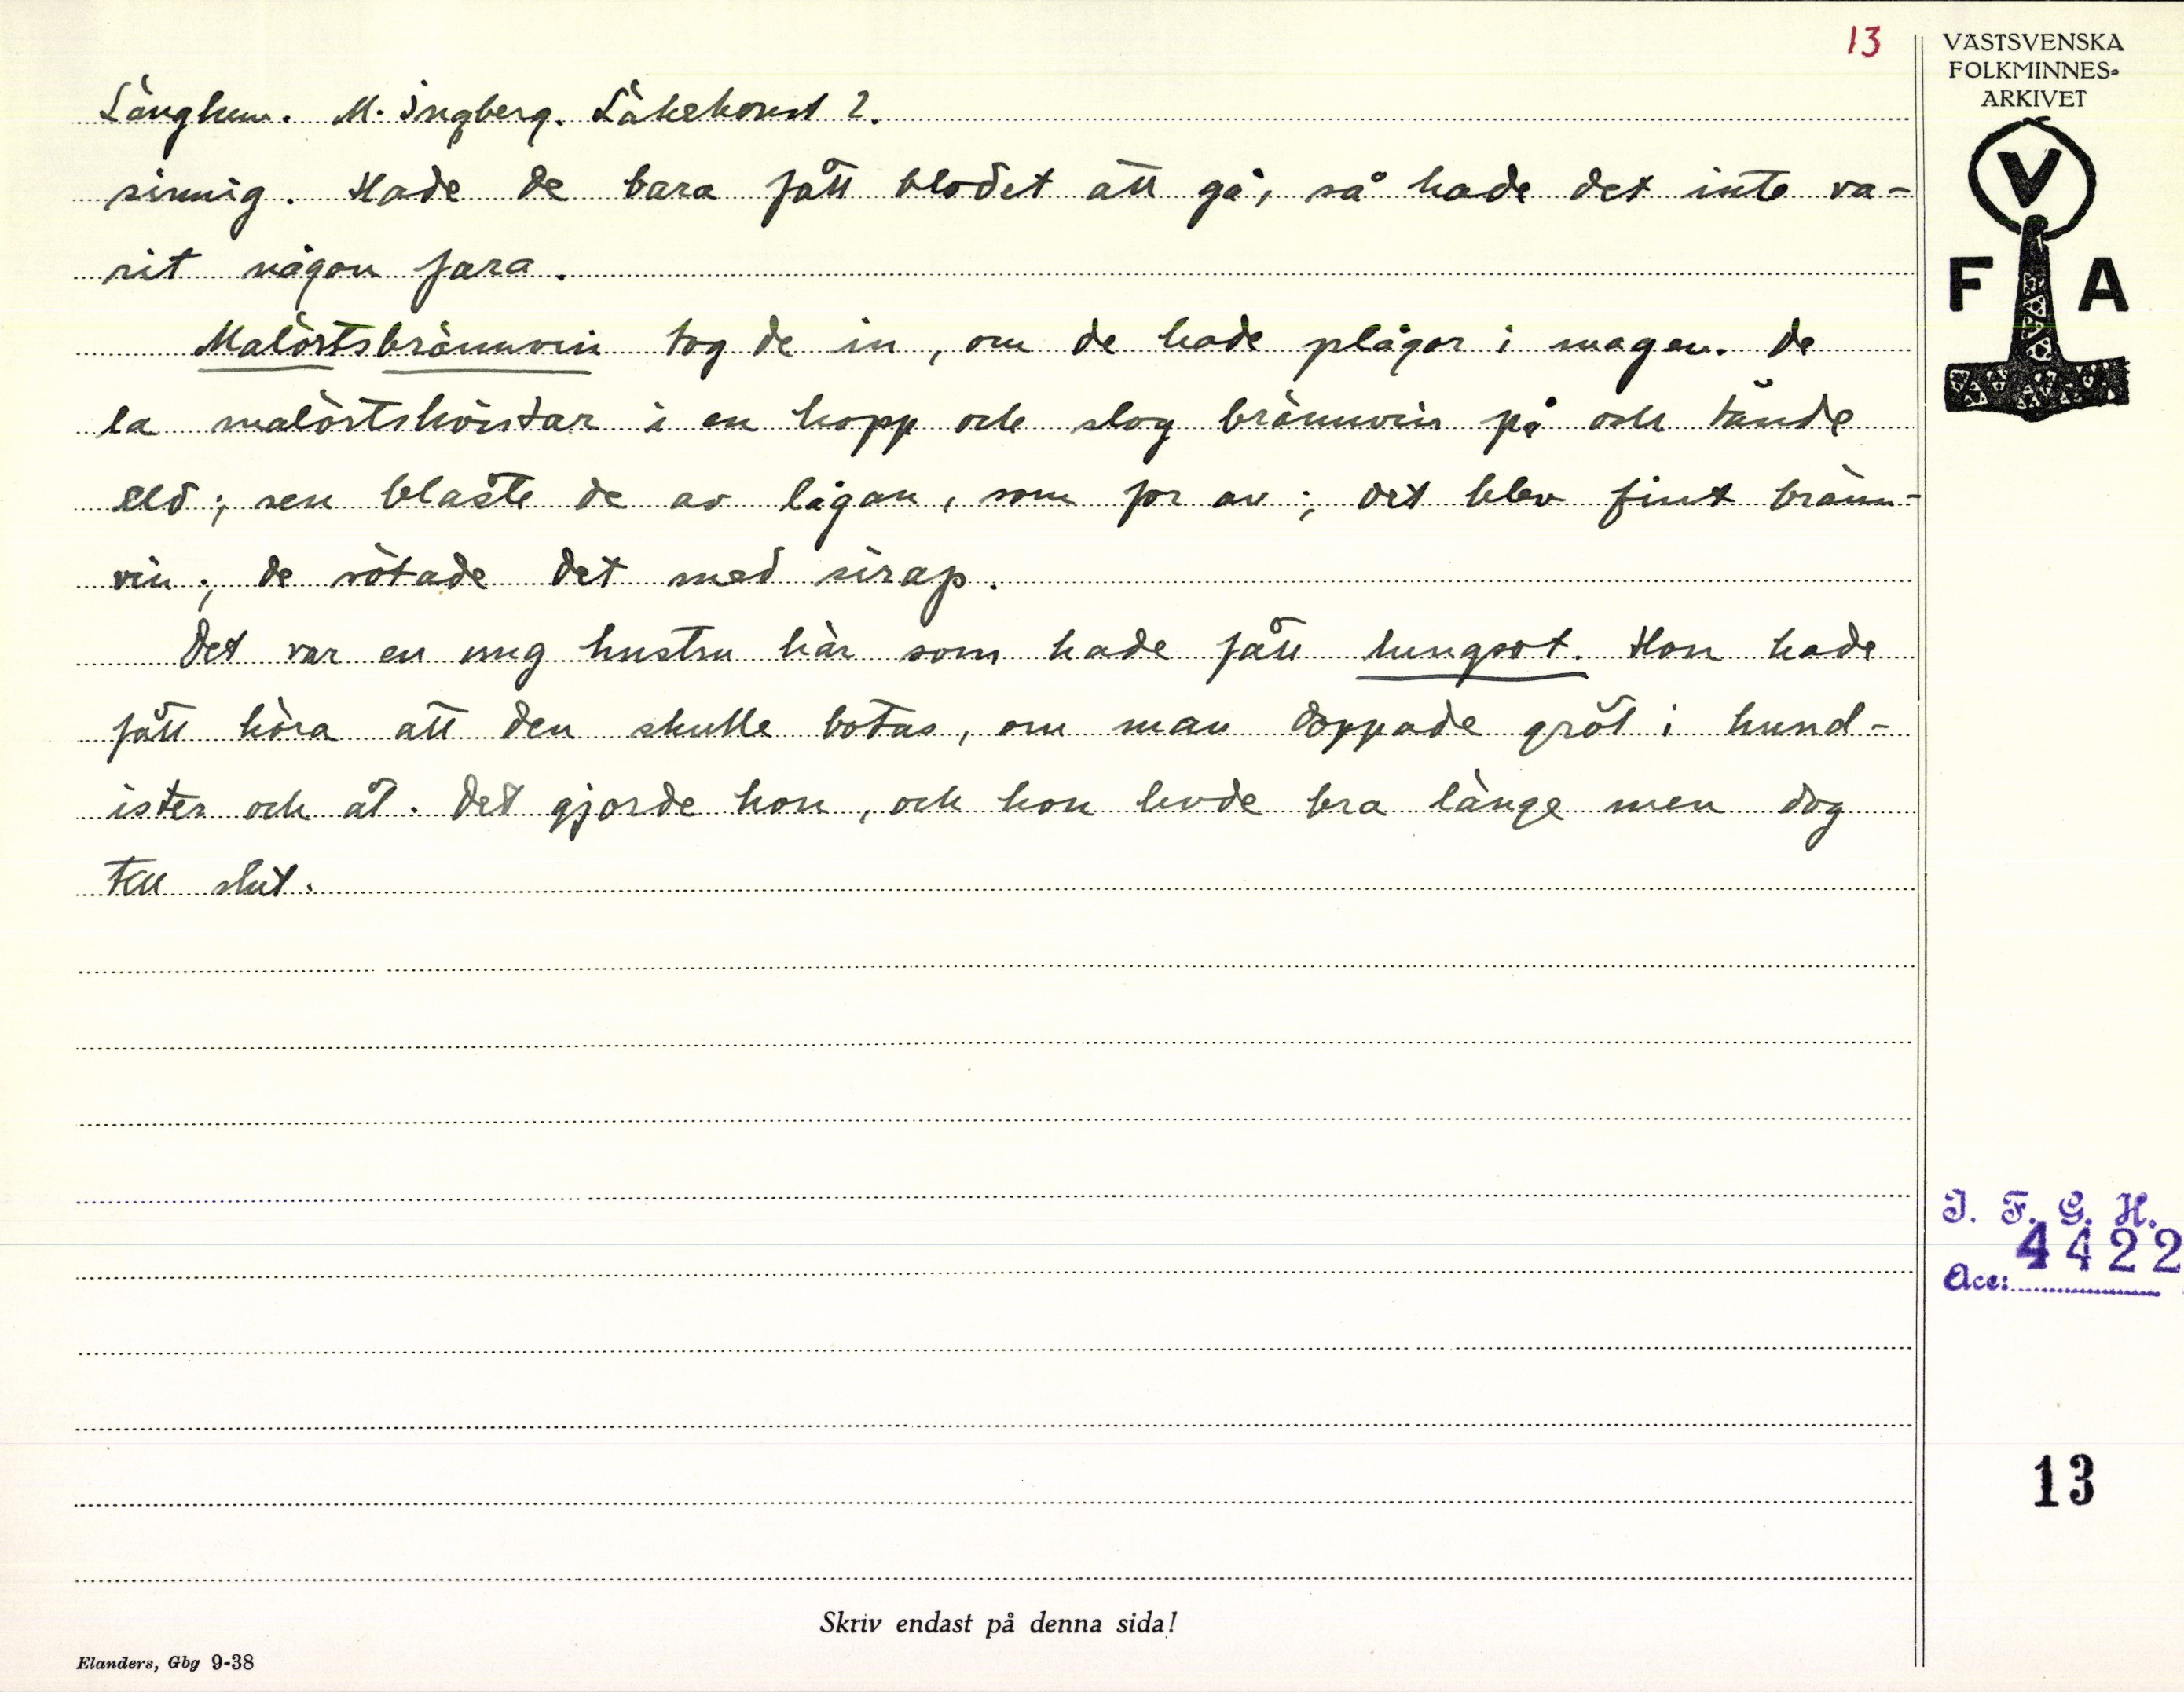 13
VÄSTSVENSKA
FOLKMINNES-
ARKIVET
V
F A
Långhem. M. Ingberg. Läkekonst 2.
sinnig. Hade de bara fått blodet att gå, så hade det inte va-
rit någon fara.
Malörtsbrännvin tog de in, om de hade plågor i magen. De
la malörtskvistar i en kopp och slog brännvin på och tände
eld; sen blåste de av lågan, som for av; det blev fint bränn-
vin; de sötade det med sirap.
Det var en ung hustru här som hade fått lungsot. Hon hade
fått höra att den skulle botas, om man doppade gröt i hund-
ister och åt. Det gjorde hon, och hon levde bra länge men dog
till slut.
I. F. G. H.
4422
Acc:
13
Skriv endast på denna sida!
Elanders, Gbg 9-38